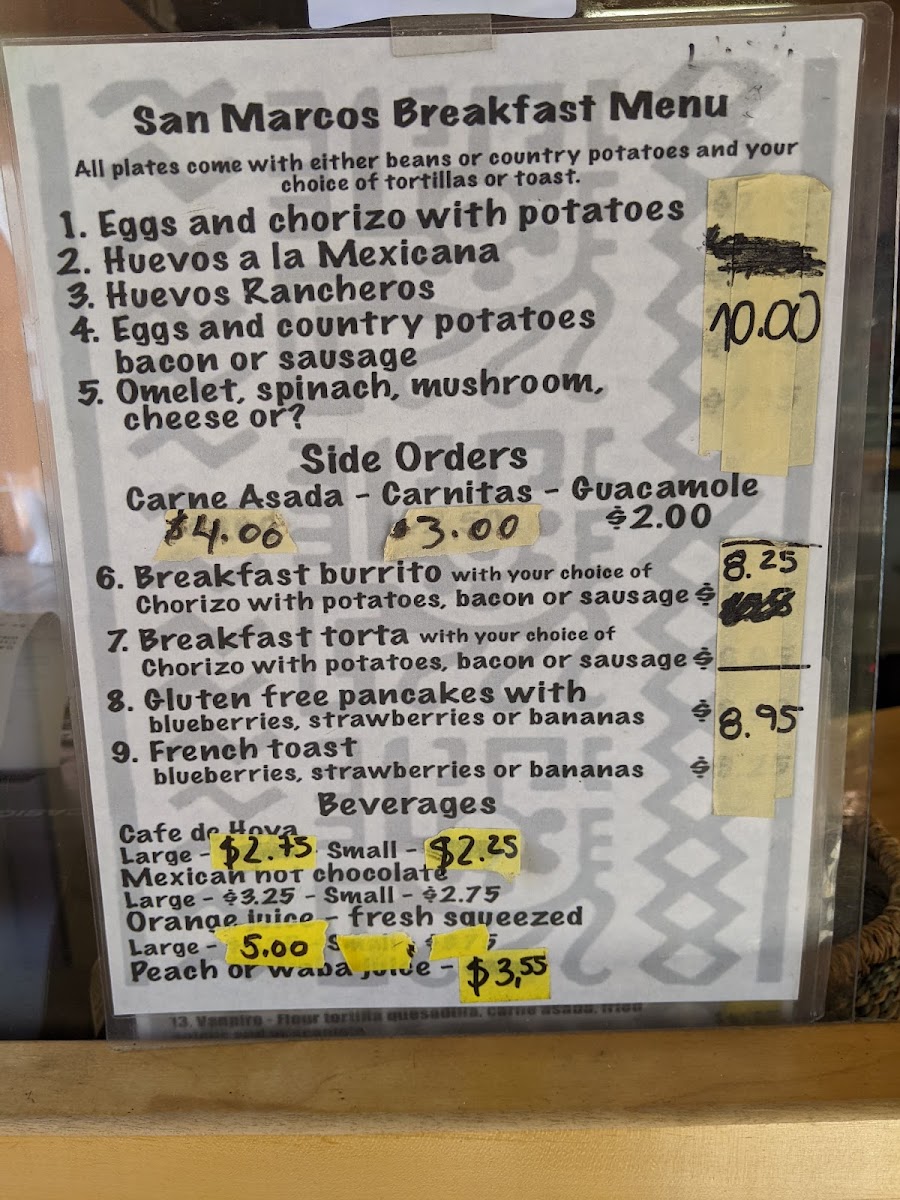 San Marcos Breakfast Menu
All plates come with either beans or country potatoes and your
choice of tortillas or toast.
1. Eggs and chorizo with potatoes
2. Huevos a la Mexicana
3. Huevos Rancheros
10.00
4. Eggs and country potatoes
bacon or sausage
5. Omelet, spinach, mushroom,
cheese or?
Side Orders
Carne Asada - Carnitas - Guacamole
$4.00 $3.00 $2.00
6. Breakfast burrito with your choice of 8.25
Chorizo with potatoes, bacon or sausage $
7. Breakfast torta with your choice of
Chorizo with potatoes, bacon or sausage $
8. Gluten free pancakes with
blueberries, strawberries or bananas $ 8.95
9. French toast
blueberries, strawberries or bananas $
Beverages
Cafe de
Large - $2.75 Small - $2.25
Mexican hot chocolate
Large - $3.25 - Small - $2.75
Orange juice - fresh squeezed
Large - 5.00
Peach or juice - $3,55
13. Vampiro - Flour tortilla quesadilla, carne asada, fried